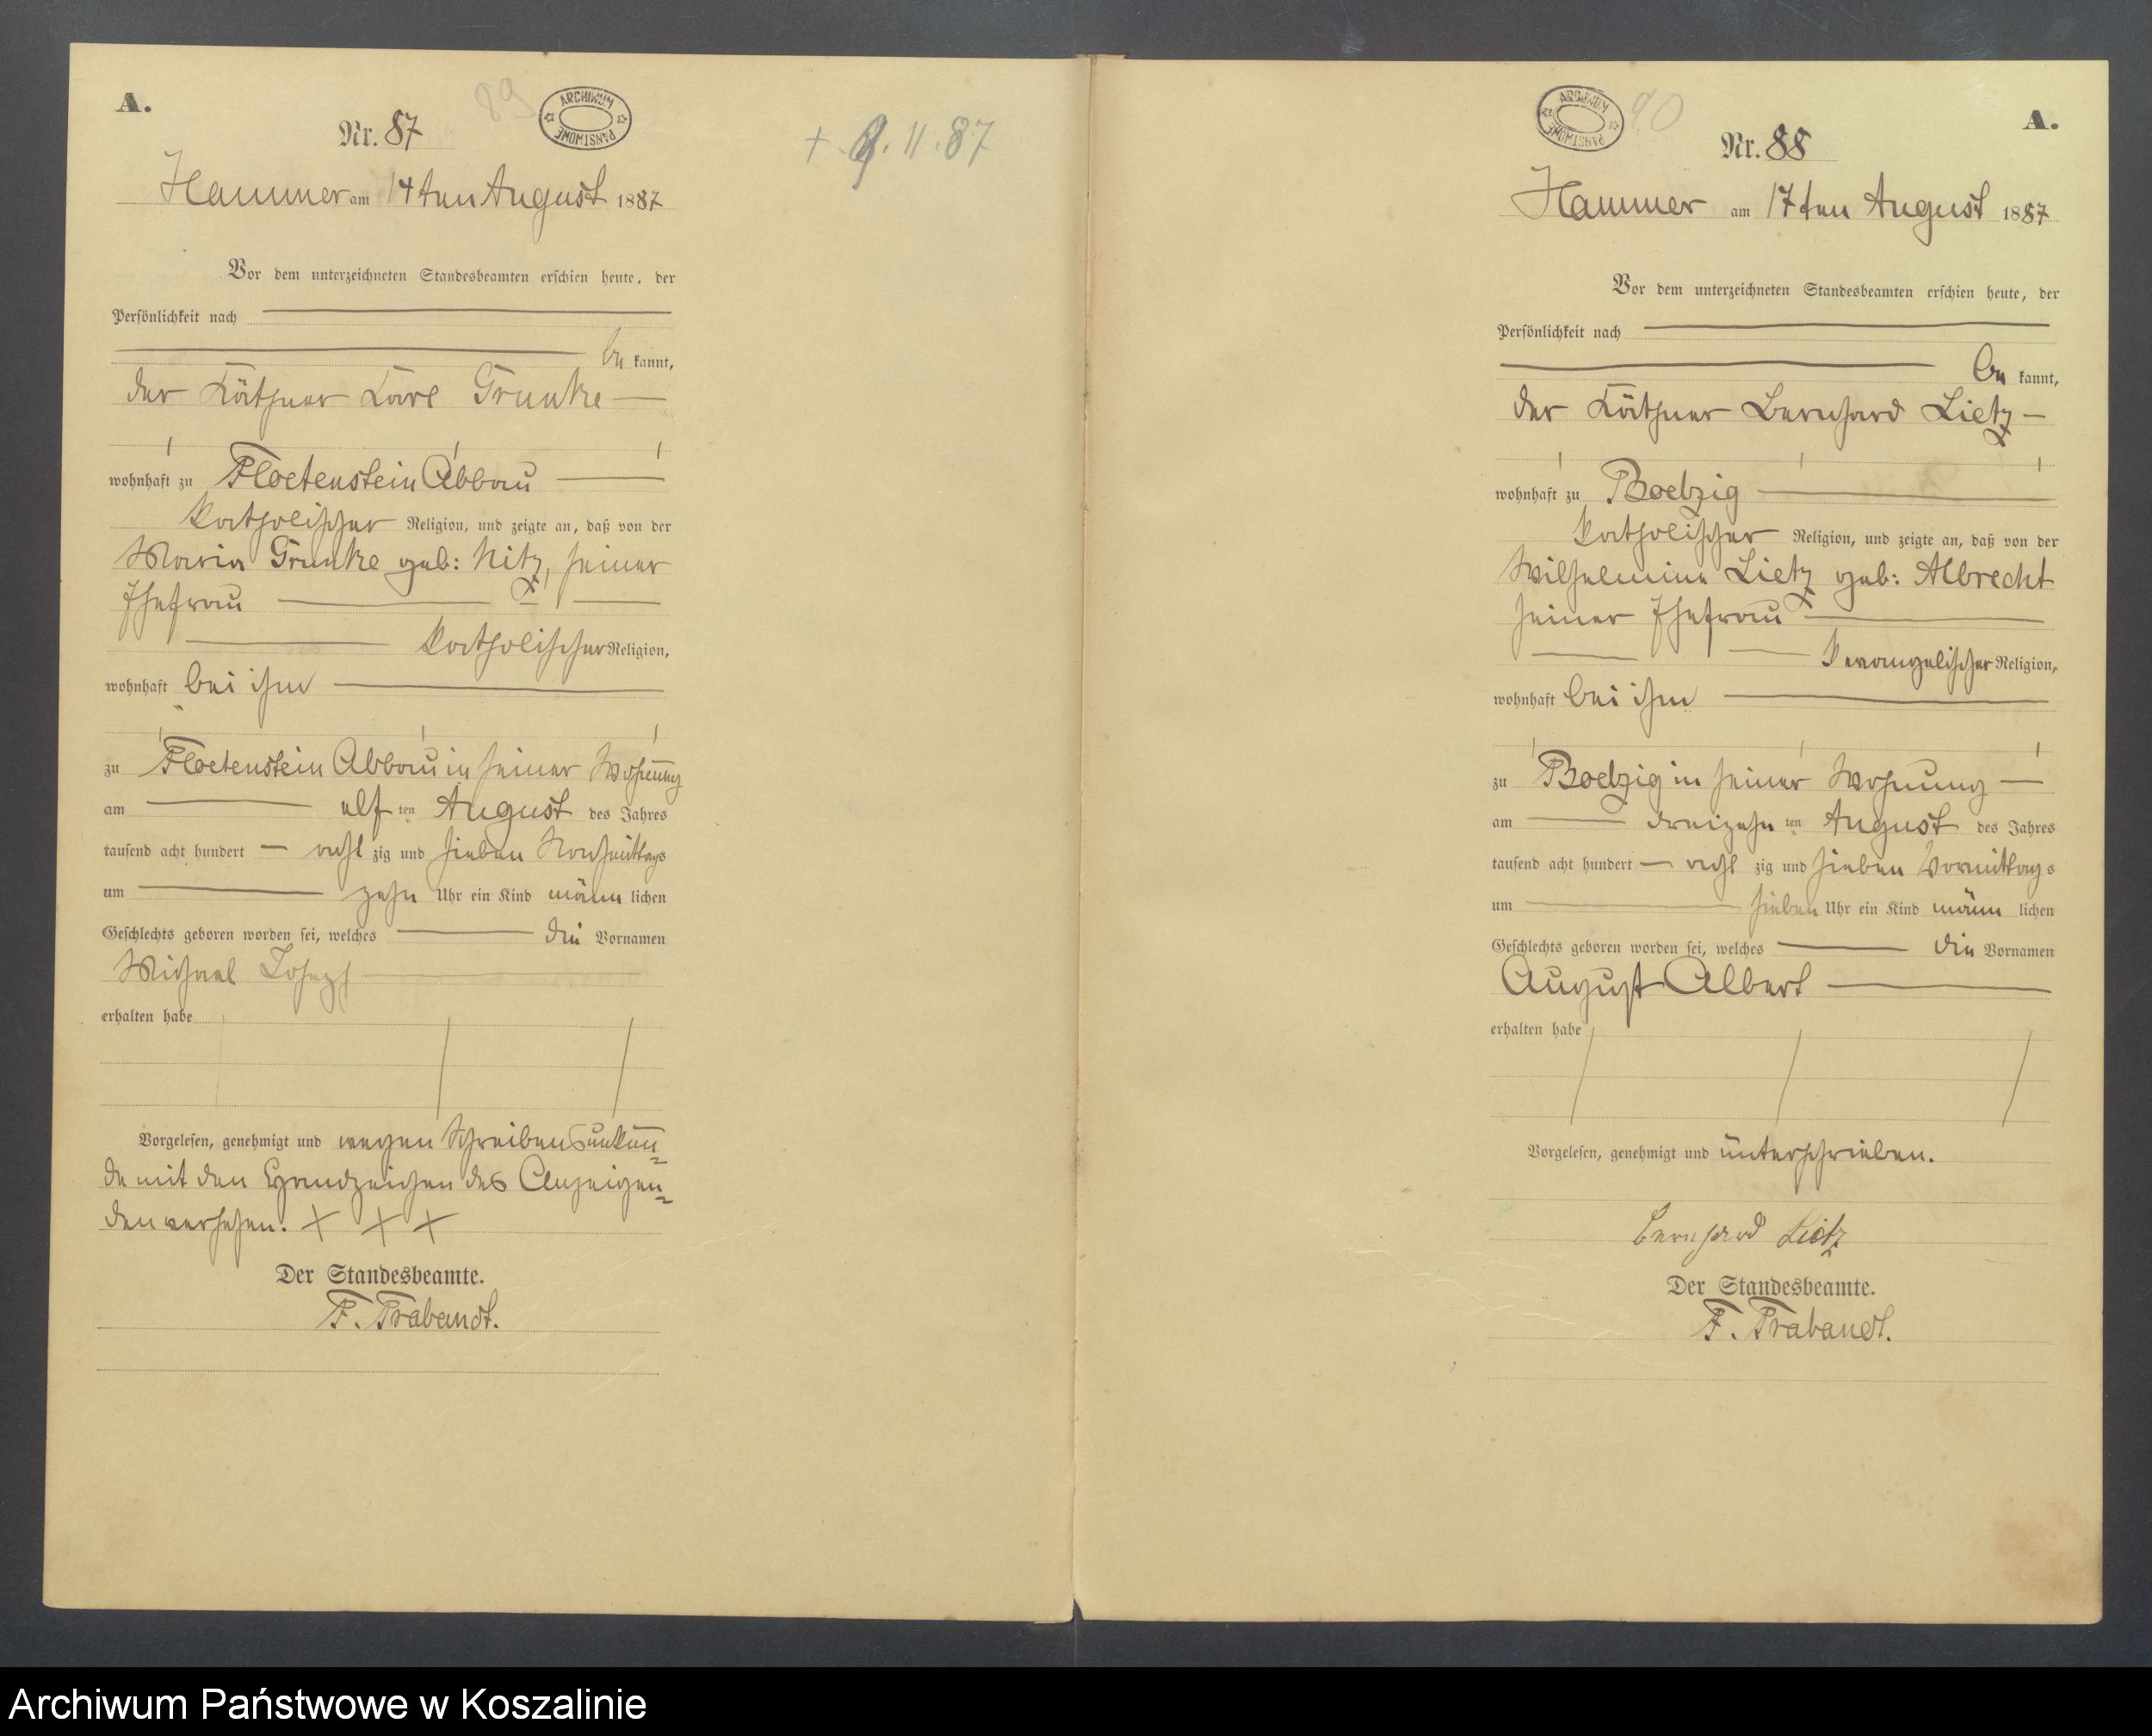 A.
89
ARCHIWUM PAŃSTWOWE
Nr. 87
+ 9. 11. 87
Hammer am 14ten August 1887
Vor dem unterzeichneten Standesbeamten erschien heute, der
Persönlichkeit nach
be kannt,
der Käthner Karl Grunke
wohnhaft zu Floetenstein Abbau
katholischer Religion, und zeigte an, daß von der
Maria Grunke geb: Nitz, seiner
Ehefrau
katholischer Religion,
wohnhaft bei ihm
zu Floetenstein Abbau in seiner Wohnung
am elf ten August des Jahres
tausend acht hundert acht zig und sieben Nachmittags
um zehn Uhr ein Kind männ lichen
Geschlechts geboren worden sei, welches die Vornamen
Michael Joseph
erhalten habe
Vorgelesen, genehmigt und wegen Schreibensunkun=
de mit den Handzeichen des Anzeigen=
den versehen. + + +
Der Standesbeamte.
F. Trabandt.
ARCHIWUM PAŃSTWOWE
90
A.
Nr. 88
Hammer am 17ten August 1887
Vor dem unterzeichneten Standesbeamten erschien heute, der
Persönlichkeit nach
be kannt,
der Käthner Bernhard Lietz
wohnhaft zu Boelzig
katholischer Religion, und zeigte an, daß von der
Wilhelmine Lietz geb: Albrecht
seiner Ehefrau
evangelischer Religion,
wohnhaft bei ihm
zu Boelzig in seiner Wohnung
am dreizehn ten August des Jahres
tausend acht hundert acht zig und sieben Vormittags
um sieben Uhr ein Kind männ lichen
Geschlechts geboren worden sei, welches die Vornamen
August Albert
erhalten habe
Vorgelesen, genehmigt und unterschrieben.
Bernhard Lietz
Der Standesbeamte.
F. Trabandt.
Archiwum Państwowe w Koszalinie